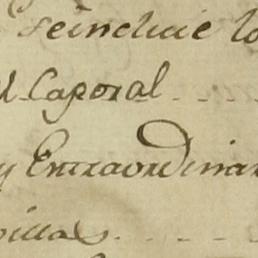 seincluie lo
Caporal
y Entraordinar
villas